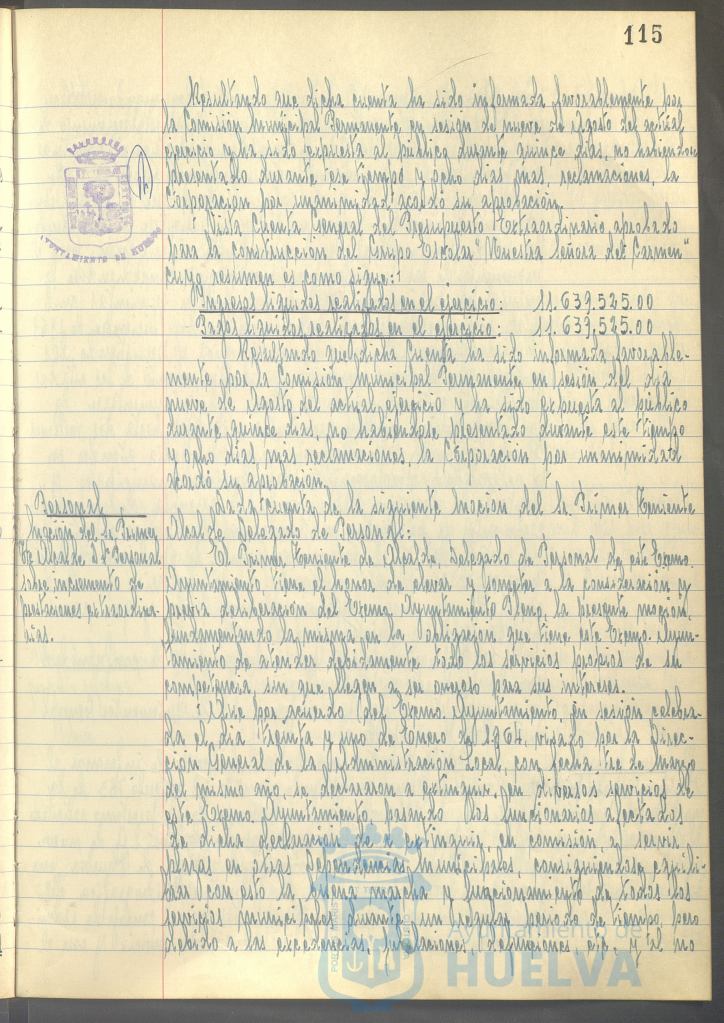 115
Resultando que dicha cuenta ha sido informada favorablemente, por
la Comisión Municipal Permanente en sesión de nueve de Agosto del actual
ejercicio y ha sido expuesta al público durante quince días, no habiendose
presentado durante ese tiempo y ocho días mas, reclamaciones, la
Corporación por unanimidad acordó su aprobación.
Vista Cuenta General del Presupuesto Extraordinario aprobado
para la construcción del Grupo Escolar "Nuestra Señora del Carmen"
cuyo resumen es como sigue:
Ingresos líquidos realizados en el ejercicio: 11.639.525.00
Pagos líquidos realizados en el ejercicio: 11.639.525.00
Resultando que dicha Cuenta ha sido informada favorable-
mente por la Comisión Municipal Permanente en sesión del día
nueve de Agosto del actual ejercicio y ha sido expuesta al público
durante quince días, no habiendose presentado durante este tiempo
y ocho días más reclamaciones, la Corporación por unanimidad
acordó su aprobación.
Dada cuenta de la siguiente Moción del Sr. Primer Teniente
Alcalde Delegado de Personal:
Personal
Moción del Sr. Primer
Te Alcalde D. de Personal
sobre incremento de
prestaciones extraordina-
rias.
El Primer Teniente de Alcalde, Delegado de Personal de este Excmo.
Ayuntamiento, tiene el honor de elevar y someter a la consideración y
previa deliberación del Excmo. Ayuntamiento Pleno, la presente moción
fundamentando la misma en la obligación que tiene este Excmo. Ayun-
tamiento de atender debidamente todo los servicios propios de su
competencia, sin que llegen a ser oneroso para sus intereses.
Que por acuerdo del Excmo. Ayuntamiento, en sesión celebra-
da el día treinta y uno de Enero de 1964, visado por la Direc-
ción General de la Administración Local, con fecha tre de Marzo
del mismo año, se declararon a extinguir en diversos servicios de
este Excmo. Ayuntamiento, pasando los funcionarios afectados
de dicha declaración de a extinguir, en comisión, a servir
plazas en otras dependencias municipales, consiguiendose equili-
brar con esto la buena marcha y funcionamiento de todos los
servicios municipales durante un regular periodo de tiempo, pero
debido a las excedencias, jubilaciones, defunciones, etc. y al no
AYUNTAMIENTO DE HUELVA
Ayuntamiento de
HUELVA